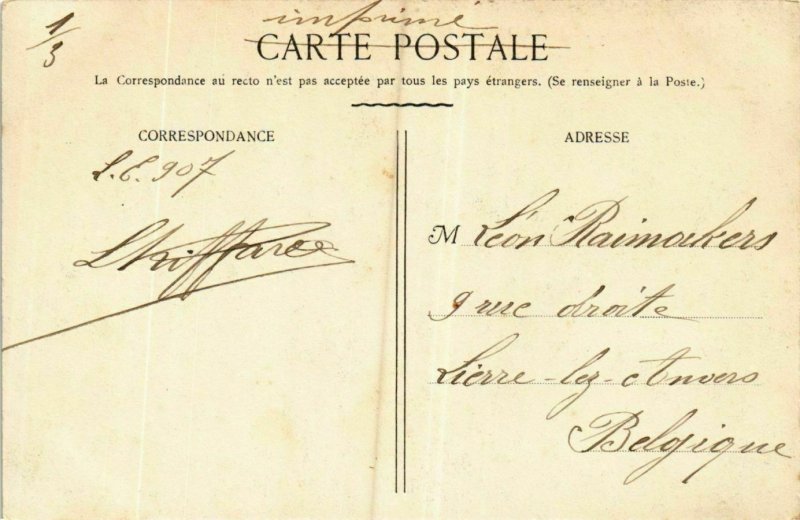 imprimé
1/3
CARTE POSTALE
La Correspondance au recto n'est pas acceptée par tous les pays étrangers. (Se renseigner à la Poste.)
CORRESPONDANCE
L.E. 907
ADRESSE
M Léon Raimackers
9 rue droite
Lierre-lez-Anvers
Belgique